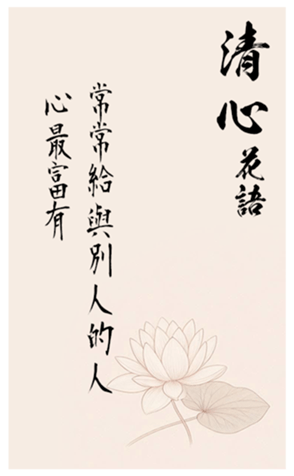 清心花語
常常給與別人的人
心最富有